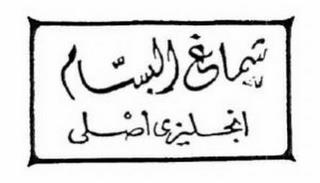 شماغ البسّام
انجليزى أصلى